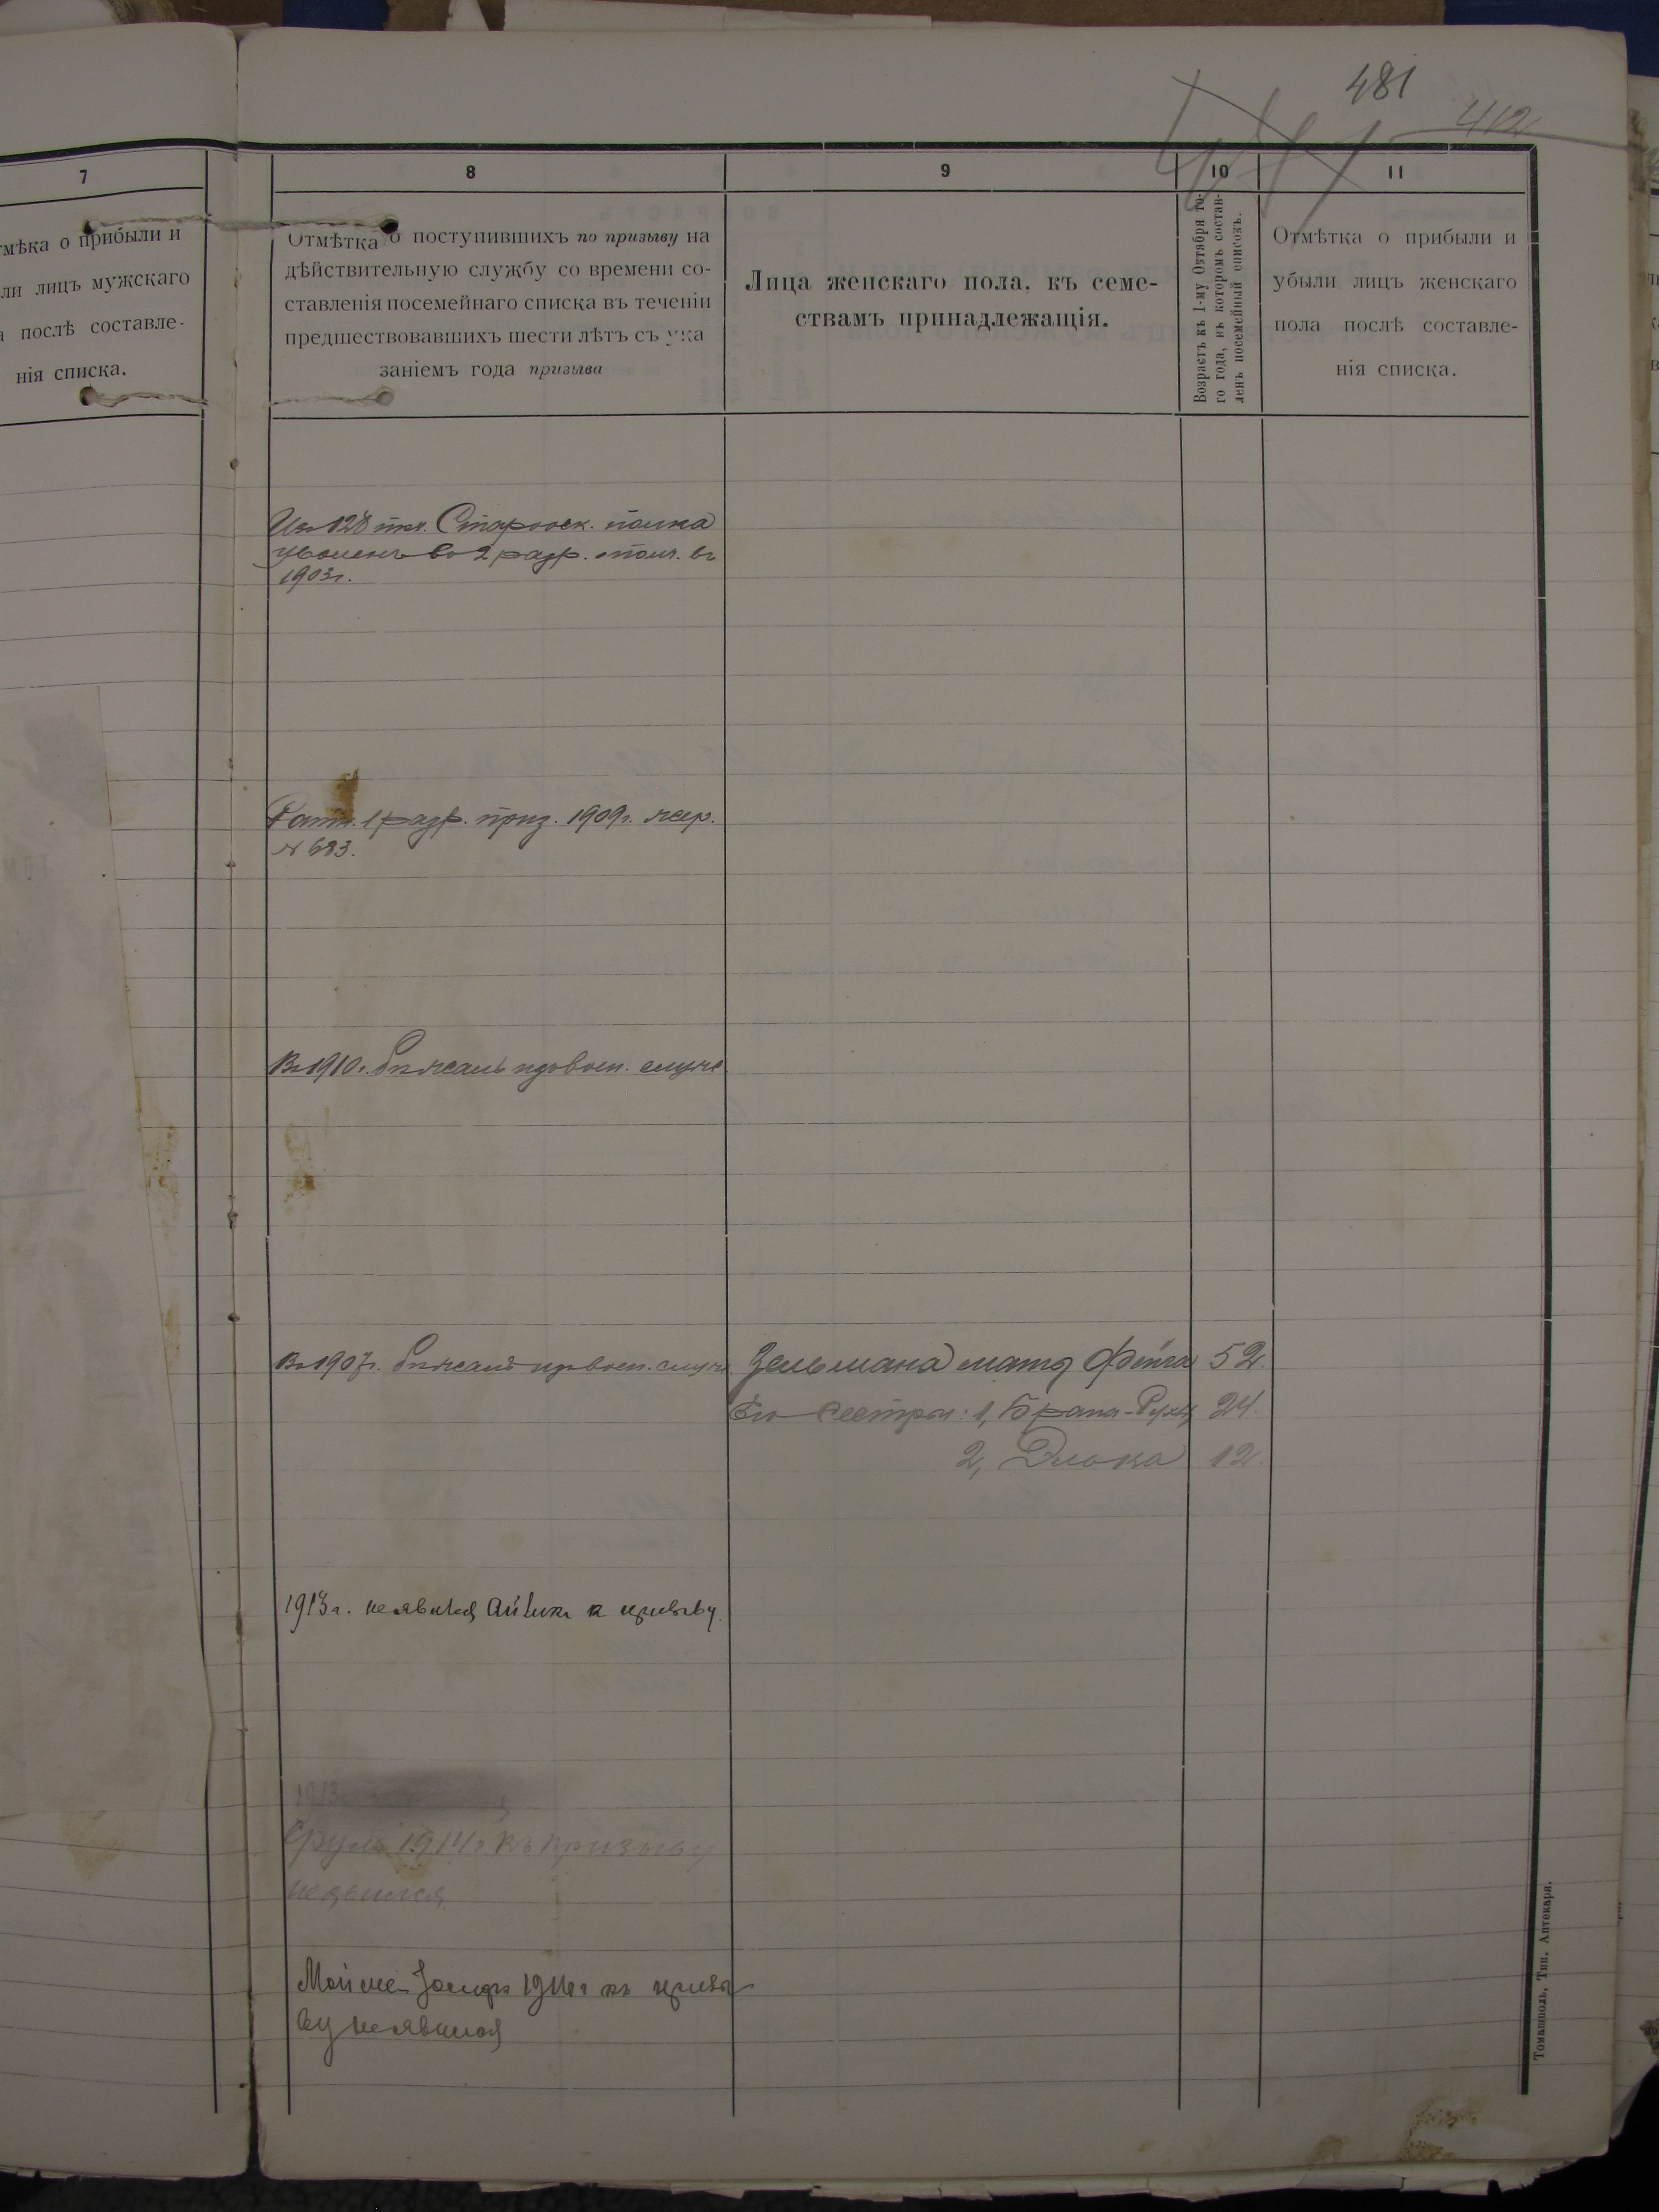 481
412
7
8
9
10
11
тмѣка о прибыли и
ли лицъ мужскаго
а послѣ составле-
нія списка.
Отмѣтка о поступившихъ по призыву на
дѣйствительную службу со времени со-
ставленія посемейнаго списка въ теченіи
предшествовавшихъ шести лѣтъ съ ука
заніемъ года призыва
Лица женскаго пола, къ семе-
ствамъ принадлежащія.
Возрастъ къ 1-му Октября то-
го года, въ которомъ состав-
ленъ посемейный списокъ.
Отмѣтка о прибыли и
убыли лицъ женскаго
пола послѣ составле-
нія списка.
Из 128 пѣх. Старооск. полка
уволенъ во 2 разр. въ
1903г.
Ратн. 1 разр. приз. 1909г. жер.
№ 683.
Въ 1910г. бѣжалъ воен. служ.
Въ 1907г. бѣжалъ воен. служ.
Зельмана мать Фейга 52.
Его сестры: 1, 24.
2, Элька 12.
1913г. неявился Айзикъ к призыву.
1913
Сруль 1914г. къ призыву
неявился
Мойше-Іосифъ 1914г къ призы
ву неявился
Томашполь, Тип. Аптекаря.